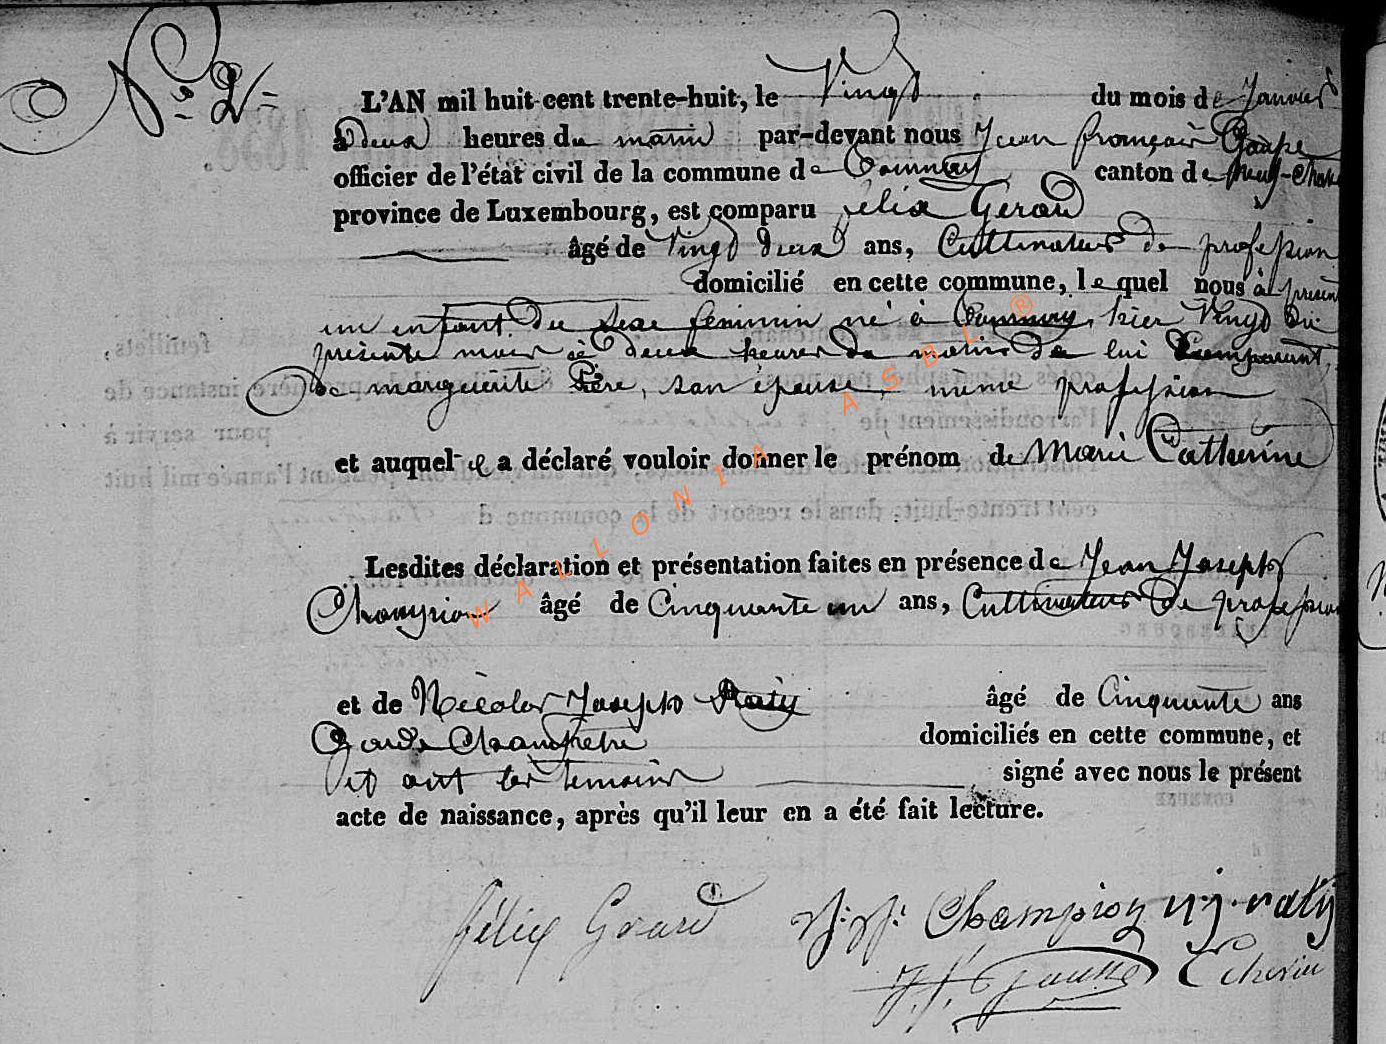 N° 2
L'AN mil huit cent trente-huit, le Vingt du mois de Janvier
à deux heures du matin par-devant nous Jean françois
officier de l'état civil de la commune de Tournay canton de Neuf-Chateau
province de Luxembourg, est comparu félix Gerard
âgé de Vingt deux ans, Cultivateur de profession
domicilié en cette commune, le quel nous à présenté
un enfant du sexe feminin né à Tournay, hier Vingt du
présente mois à deux heures du matin de lui Comparant,
de marguerite son épouse, même profession
et auquel il a déclaré vouloir donner le prénom de Marie Catherine
Lesdites déclaration et présentation faites en présence de Jean Joseph
Champion âgé de Cinquante un ans, Cultivateur de profession
et de Nicolas Joseph Raty âgé de Cinquante ans
Garde Champetre domiciliés en cette commune, et
et ont les temoins signé avec nous le présent
acte de naissance, après qu'il leur en a été fait lecture.
félix Gerard J: J: Champion n j raty
J. f. Echevin
WALLONIA ASBL ®